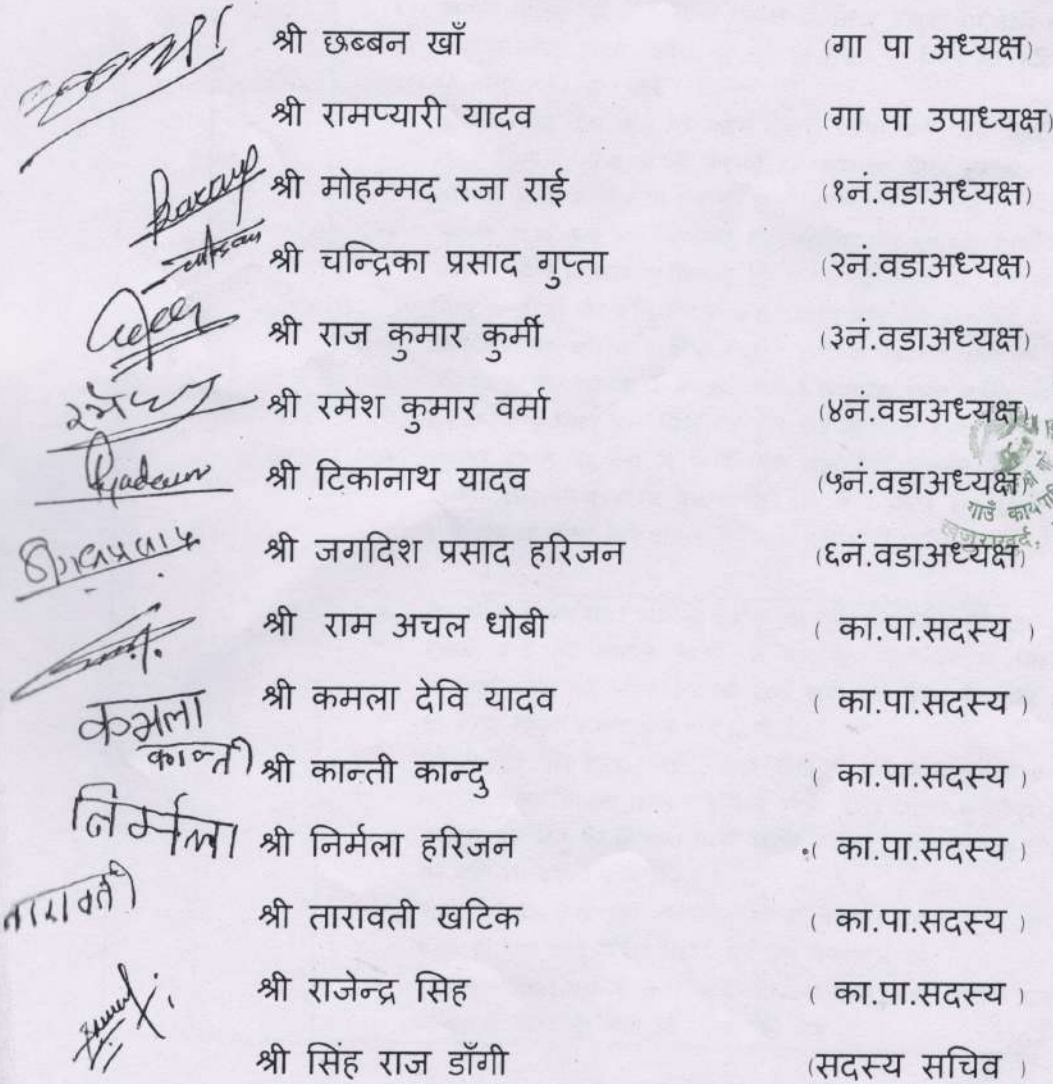 श्री छब्बन खाँ (गा पा अध्यक्ष)
श्री रामप्यारी यादव (गा पा उपाध्यक्ष)
श्री मोहम्मद रजा राई (१नं.वडाअध्यक्ष)
श्री चन्द्रिका प्रसाद गुप्ता (२नं.वडाअध्यक्ष)
श्री राज कुमार कुर्मी (३नं.वडाअध्यक्ष)
श्री रमेश कुमार वर्मा (४नं.वडाअध्यक्ष)
श्री टिकानाथ यादव (५नं.वडाअध्यक्ष)
गाउँ
श्री जगदिश प्रसाद हरिजन (६नं.वडाअध्यक्ष)
श्री राम अचल धोबी ( का.पा.सदस्य )
कमला श्री कमला देवि यादव ( का.पा.सदस्य )
कान्ती श्री कान्ती कान्दु ( का.पा.सदस्य )
निर्मला श्री निर्मला हरिजन ( का.पा.सदस्य )
तारावती श्री तारावती खटिक ( का.पा.सदस्य )
श्री राजेन्द्र सिंह ( का.पा.सदस्य )
श्री सिंह राज डाँगी (सदस्य सचिव )